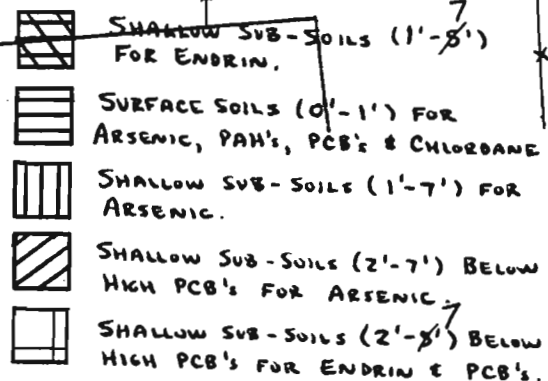 SHALLOW SUB-SOILS (1'-7')
FOR ENDRIN.
SURFACE SOILS (0'-1') FOR
ARSENIC, PAH's, PCB's & CHLORDANE
SHALLOW SUB-SOILS (1'-7') FOR
ARSENIC.
SHALLOW SUB-SOILS (2'-7') BELOW
HIGH PCB's FOR ARSENIC.
SHALLOW SUB-SOILS (2'-7') BELOW
HIGH PCB's FOR ENDRIN & PCB's.